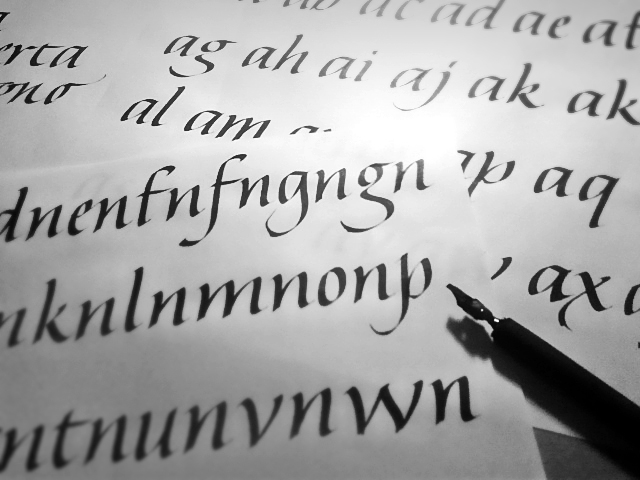 ac ad ae af
erta
ag ah ai aj ak ak
eno
al am
dnenfnfngngn
p aq
nknlnmnonp
ax
ntnunvnwn